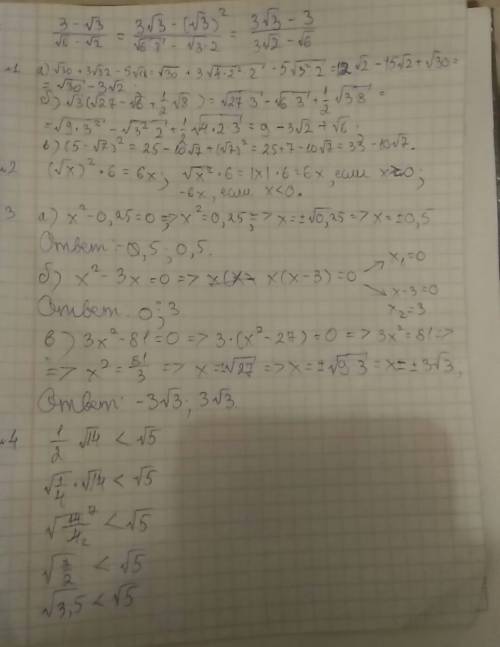 (3 - √3)/(√6 - √2) = (3√3 - (√3)²)/(√6·3 - √3·2) = (3√3 - 3)/(3√2 - √6)
№1 а) √30 + 3√32 - 5√18 = √30 + 3√4²·2 - 5√3²·2 = 12√2 - 15√2 + √30 =
= √30 - 3√2
б) √3(√27 - √6 + 1/2 √8) = √27·3 - √6·3 + 1/2 √3·8 =
= √9·3² - √3²·2 + 1/2 √4·2·3 = 9 - 3√2 + √6.
в) (5 - √7)² = 25 - 10√7 + (√7)² = 25 + 7 - 10√7 = 32 - 10√7.
№2 (√x)²·6 = 6x; √x²·6 = |x|·6 = 6x, если x≥0;
-6x, если x<0.
3 а) x² - 0,25 = 0 => x² = 0,25 => x = ±√0,25 => x = ±0,5
Ответ: -0,5; 0,5.
б) x² - 3x = 0 => x(x - 3) = 0
x₁ = 0
x - 3 = 0
x₂ = 3
Ответ: 0; 3
в) 3x² - 81 = 0 => 3·(x² - 27) = 0 => 3x² = 81 =>
=> x² = 81/3 => x = ±√27 => x = ±√9·3 = x = ±3√3.
Ответ: -3√3; 3√3.
№4 1/2 √14 < √5
√1/4 · √14 < √5
√14/4 < √5
√7/2 < √5
√3,5 < √5